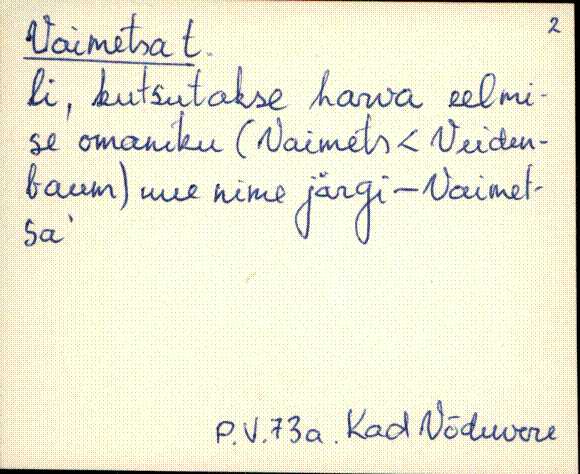 2
Vaimetsa t.
li, kutsutakse harva eelmi-
se omaniku (Vaimets < Veiden-
baum) uue nime järgi – Vaimet-
sa'
P.V.73a. Kad Võduvere